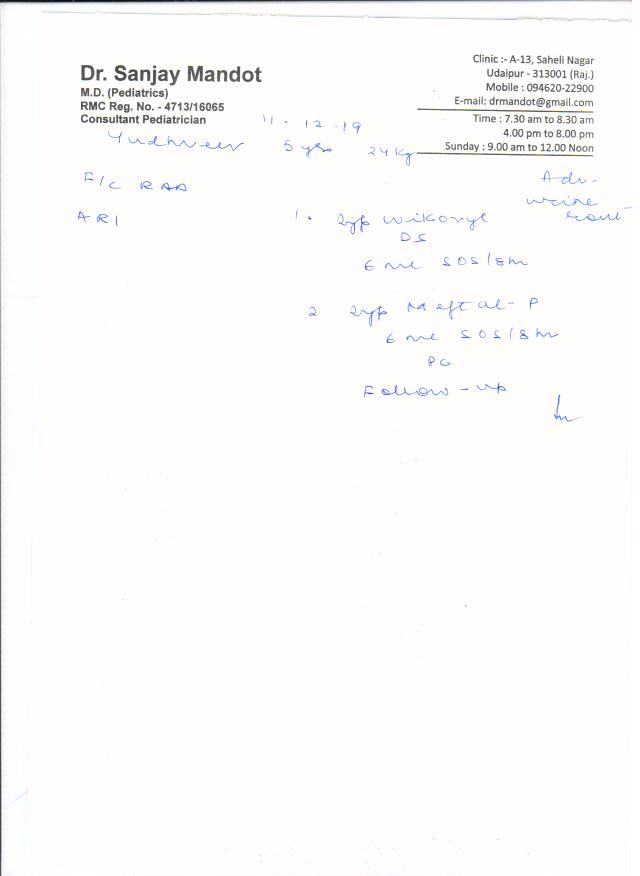 Dr. Sanjay Mandot
M.D. (Pediatrics)
RMC Reg. No. - 4713/16065
Consultant Pediatrician
Clinic :- A-13, Saheli Nagar
Udaipur - 313001 (Raj.)
Mobile : 094620-22900
E-mail: drmandot@gmail.com
Time : 7.30 am to 8.30 am
4.00 pm to 8.00 pm
Sunday : 9.00 am to 12.00 Noon
11.12.19
Yudhveer 5 yrs 24 Kg
F/C
ARI
Adv-
urine
rout
1. Syp Wikoryl
DS
6 ml SOS/8h
2 Syp Meftal-P
6 ml SOS/8h
PC
Follow-up